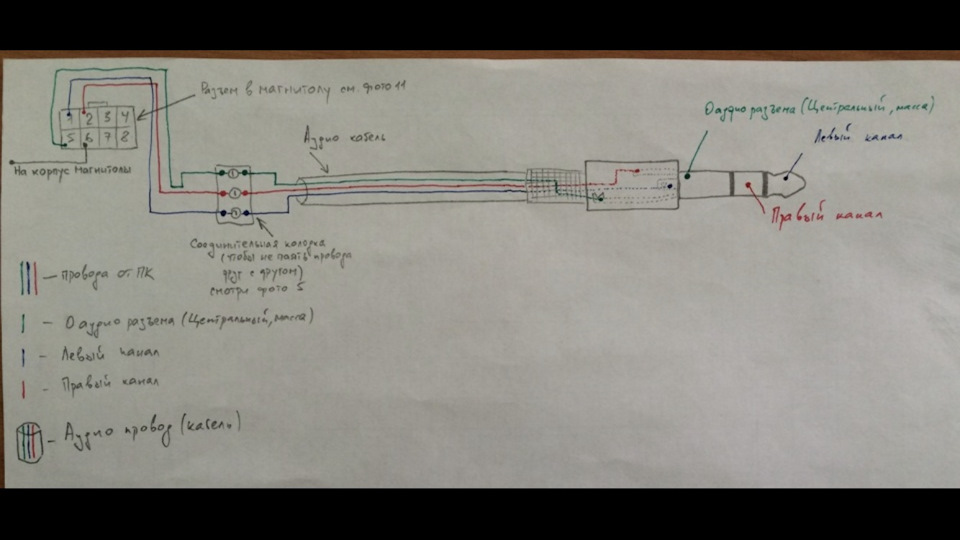 Разъем в магнитолу см. фото 11
1 2 3 4
5 6 7 8
На корпус магнитолы
Аудио кабель
0 аудио разъема (Центральный, масса)
Левый канал
Правый канал
Соединительная колодка
(чтобы не паять провода
друг с другом)
смотри фото 5
- провода от ПК
- 0 аудио разъема (Центральный, масса)
- Левый канал
- Правый канал
- Аудио провод (кабель)